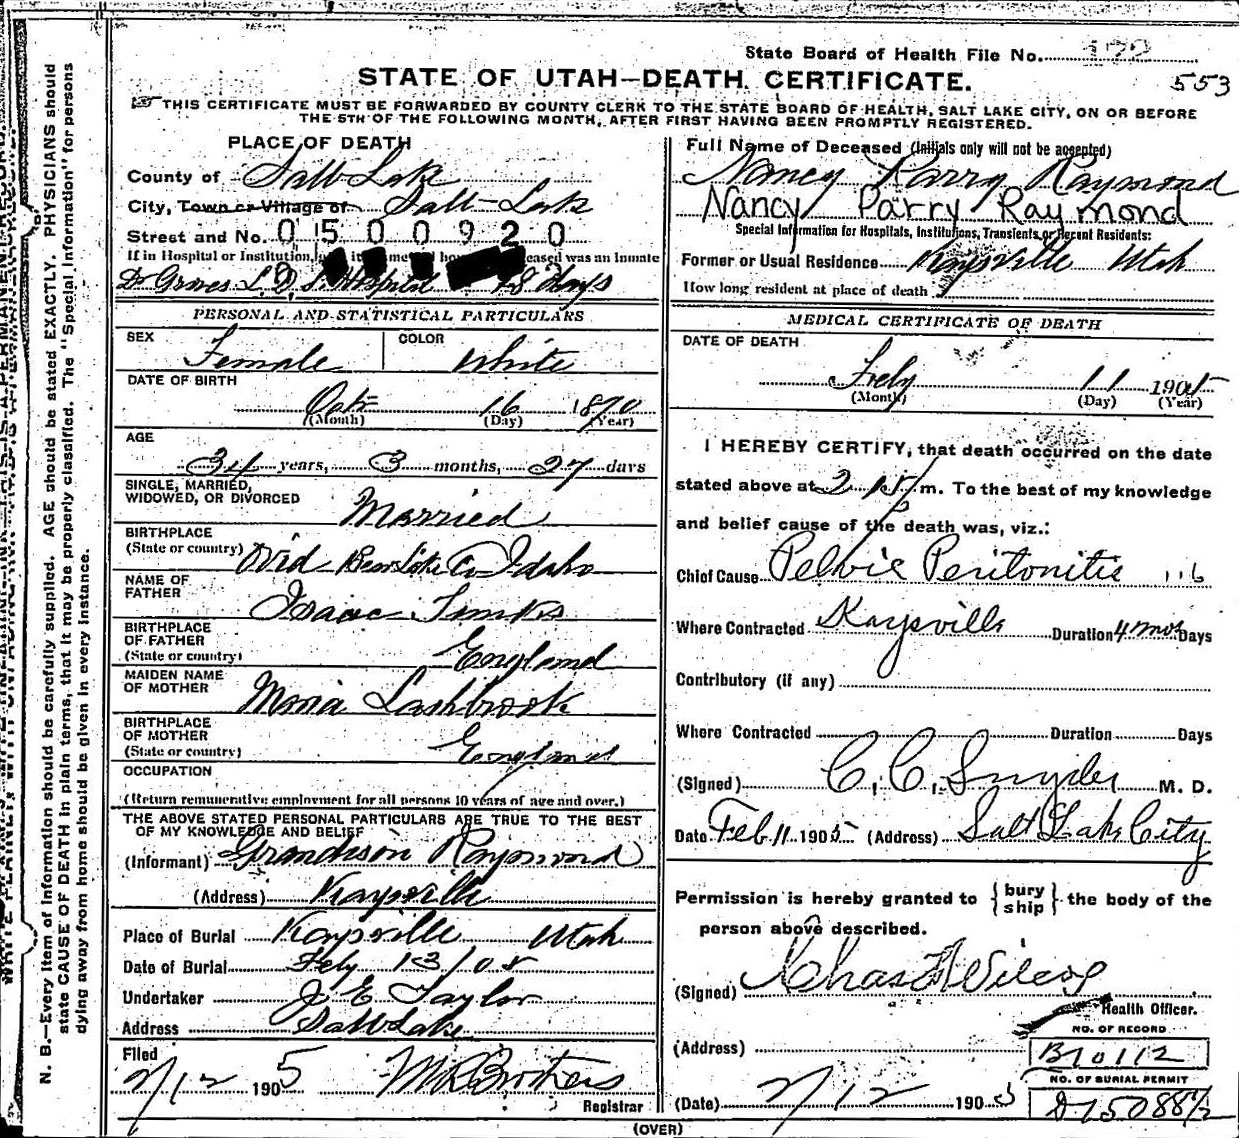 State Board of Health File No. 172
553
STATE OF UTAH—DEATH CERTIFICATE.
THIS CERTIFICATE MUST BE FORWARDED BY COUNTY CLERK TO THE STATE BOARD OF HEALTH, SALT LAKE CITY, ON OR BEFORE
THE 5TH OF THE FOLLOWING MONTH, AFTER FIRST HAVING BEEN PROMPTLY REGISTERED.
PLACE OF DEATH
County of Salt Lake
City, Town or Village of Salt Lake
Street and No. 0 5 0 0 9 2 0
If in Hospital or Institution, ceased was an Inmate
Dr Groves L. D. S. Hospital 18 Days
Full Name of Deceased (Initials only will not be accepted)
Nancy Parry Raymond
Nancy Parry Raymond
Special Information for Hospitals, Institutions, Transients, or Recent Residents:
Former or Usual Residence Kaysville Utah
How long resident at place of death
PERSONAL AND STATISTICAL PARTICULARS
SEX Female
COLOR White
DATE OF BIRTH
Oct 16 1870
(Month) (Day) (Year)
AGE
34 years, 3 months, 27 days
SINGLE, MARRIED,
WIDOWED, OR DIVORCED
Married
BIRTHPLACE
(State or country) Ovid Bear Lake Co Idaho
NAME OF
FATHER Isaac
BIRTHPLACE
OF FATHER
(State or country) England
MAIDEN NAME
OF MOTHER Maria Lashbrook
BIRTHPLACE
OF MOTHER
(State or country) England
OCCUPATION
(Return remunerative employment for all persons 10 years of age and over.)
THE ABOVE STATED PERSONAL PARTICULARS ARE TRUE TO THE BEST
OF MY KNOWLEDGE AND BELIEF
(Informant) Grandison Raymond
(Address) Kaysville
Place of Burial Kaysville Utah
Date of Burial Feby 13/05
Undertaker J E Taylor
Address Salt Lake
Filed
2/12 1905
Registrar
MEDICAL CERTIFICATE OF DEATH
DATE OF DEATH
Feby 11 1905
(Month) (Day) (Year)
I HEREBY CERTIFY, that death occurred on the date
stated above at 2.15 P m. To the best of my knowledge
and belief cause of the death was, viz.:
Chief Cause Pelvic Peritonitis 116
Where Contracted Kaysville Duration 4 mos Days
Contributory (if any)
Where Contracted Duration Days
(Signed) C. C. Snyder M. D.
Date Feb. 11 1905 (Address) Salt Lake City
Permission is hereby granted to { bury ship } the body of the
person above described.
(Signed) Chas F Wilcox
Health Officer.
(Address)
(Date) 2/12 1905
NO. OF RECORD
B10112
NO. OF BURIAL PERMIT
D15088½
(OVER)
N. B.—Every item of information should be carefully supplied. AGE should be stated EXACTLY. PHYSICIANS should
state CAUSE OF DEATH in plain terms, that it may be properly classified. The "Special Information" for persons
dying away from home should be given in every instance.